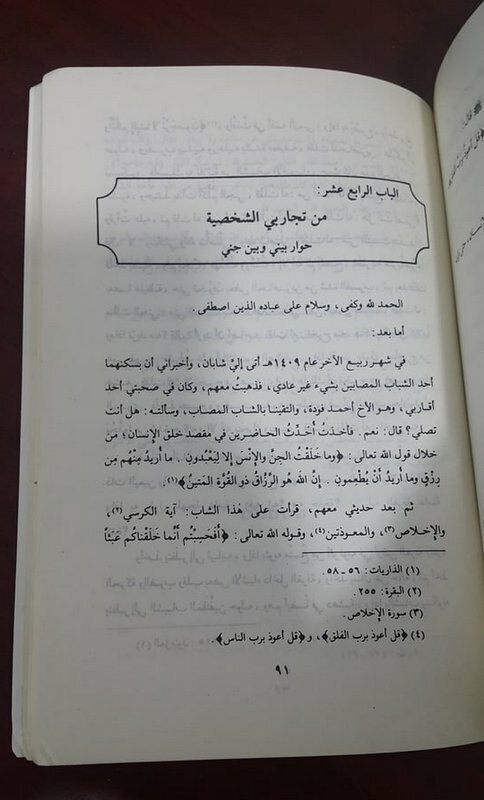 الباب الرابع عشر:
من تجاربي الشخصية
حوار بيني وبين جني
الحمد لله وكفى، وسلام على عباده الذين اصطفى.
أما بعد:
في شهر ربيع الآخر عام ١٤٠٩هـ أتى إليَّ شابان، وأخبراني أن بسكنهما
أحد الشباب المصابين بشيء غير عادي، فذهبتُ معهم، وكان في صحبتي أحد
أقاربي، وهو الأخ أحمد فودة، والتقينا بالشاب المصاب، وسألته: هل أنت
تصلي؟ قال: نعم. فأخذتُ أُحَدِّثُ الحاضرين في مقصد خلق الإنسان؛ من
خلال قول الله تعالى: ﴿وما خَلَقْتُ الجِنَّ والإنْسَ إلا لِيَعْبُدونِ. ما أريدُ مِنْهُم مِن
رِزْقٍ وما أريدُ أنْ يُطْعِمونِ. إنَّ الله هُو الرَّزَّاقُ ذو القُوَّةِ المَتينُ﴾(١).
ثم بعد حديثي معهم، قرأت على هذا الشاب: آية الكرسي(٢)،
والإخلاص(٣)، والمعوذتين(٤)، وقوله الله تعالى: ﴿أَفَحَسِبْتُم أنَّما خَلَقْناكُم عَبَثاً
(١) الذاريات: ٥٦ - ٥٨.
(٢) البقرة: ٢٥٥.
(٣) سورة الإخلاص.
(٤) ﴿قل أعوذ برب الفلق﴾، و﴿قل أعوذ برب الناس﴾.
٩١